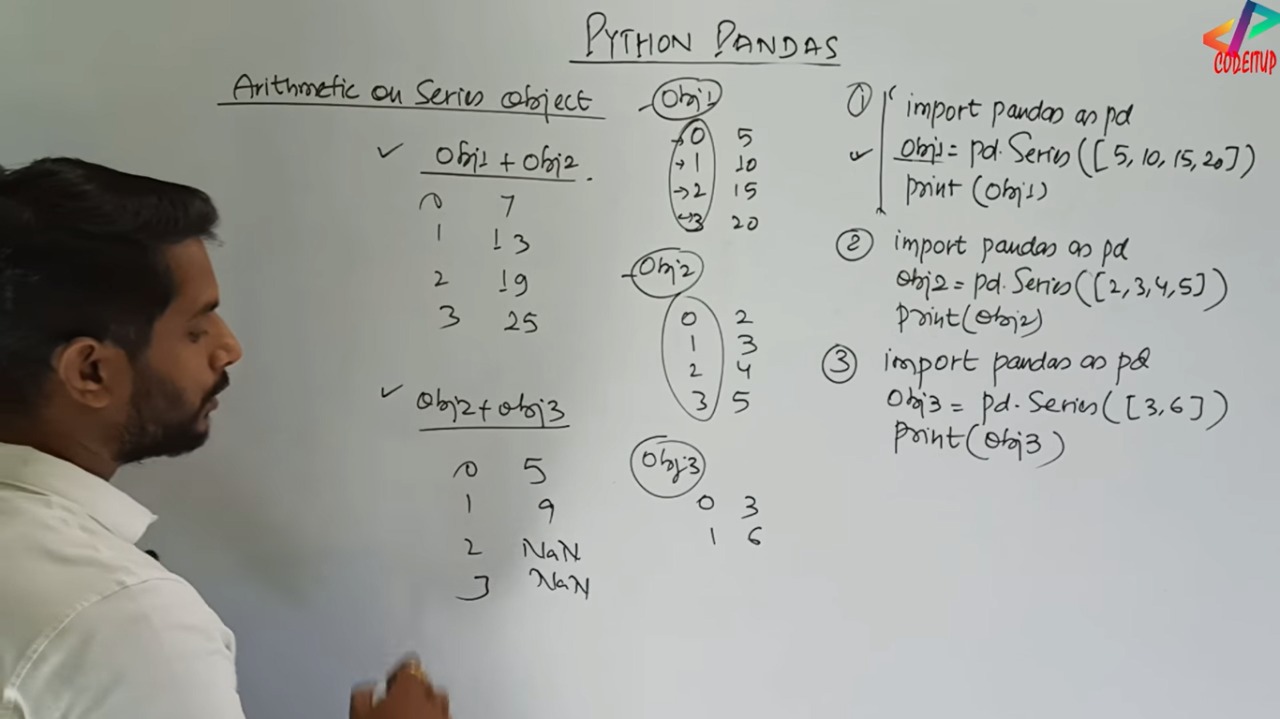 PYTHON PANDAS
CODEITUP
Arithmetic on Series object
Obj1 + Obj2
0 7
1 13
2 19
3 25
Obj2 + Obj3
0 5
1 9
2 NaN
3 NaN
Obj1
0 5
1 10
2 15
3 20
Obj2
0 2
1 3
2 4
3 5
Obj3
0 3
1 6
① import pandas as pd
Obj1 = pd.Series([5, 10, 15, 20])
print (Obj1)
② import pandas as pd
Obj2 = pd.Series([2, 3, 4, 5])
print(Obj2)
③ import pandas as pd
Obj3 = pd.Series([3, 6])
print(Obj3)